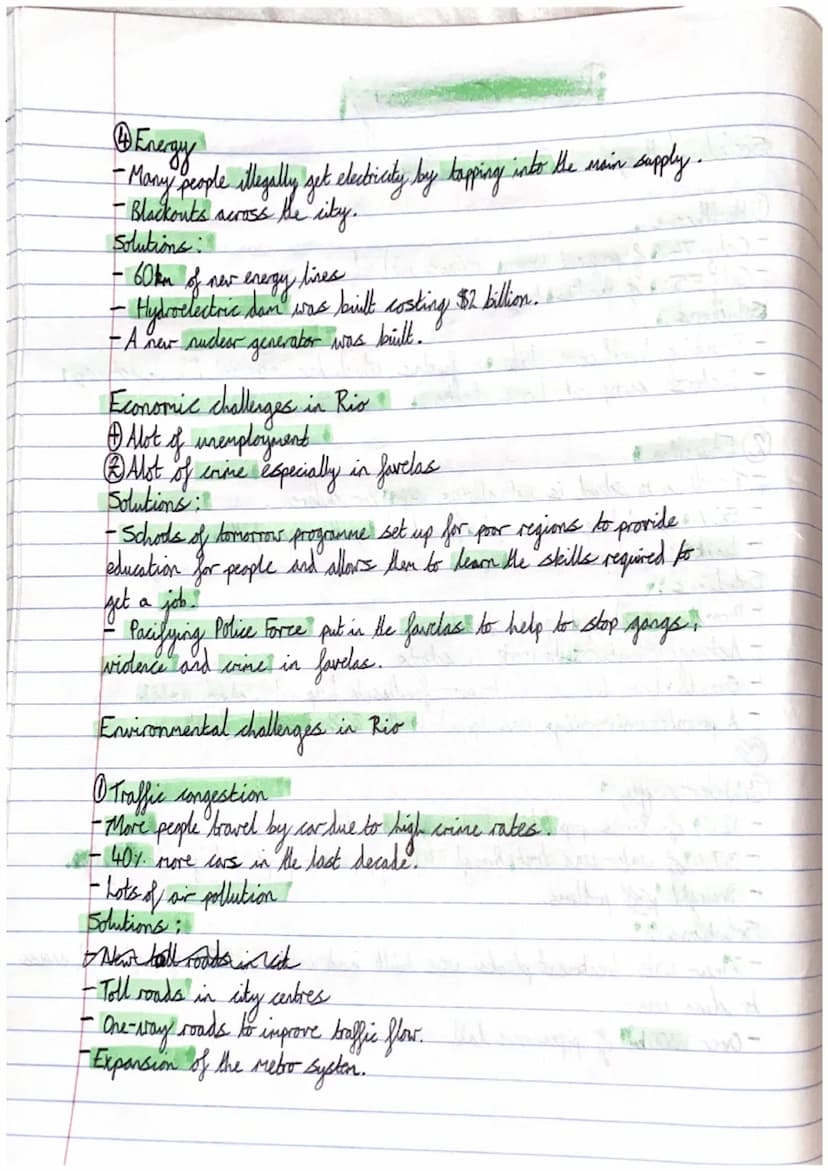 ④ Energy
- Many people illegally get electricity by tapping into the main supply.
- Blackouts across the city.
Solutions:
- 60km of new energy lines
- Hydroelectric dam was built costing $2 billion.
- A new nuclear generator was built.
Economic challenges in Rio
① Alot of unemployment
② Alot of crime especially in favelas
Solutions:
- Schools of tomorrow programme set up for poor regions to provide
education for people and allows them to learn the skills required to
get a job.
- Pacifying Police Force put in the favelas to help to stop gangs,
violence and crime in favelas.
Environmental challenges in Rio
① Traffic congestion
- More people travel by car due to high crime rates.
- 40% more cars in the last decade.
- Lots of air pollution
Solutions:
- Toll roads in city centres
- One-way roads to improve traffic flow.
- Expansion of the metro system.